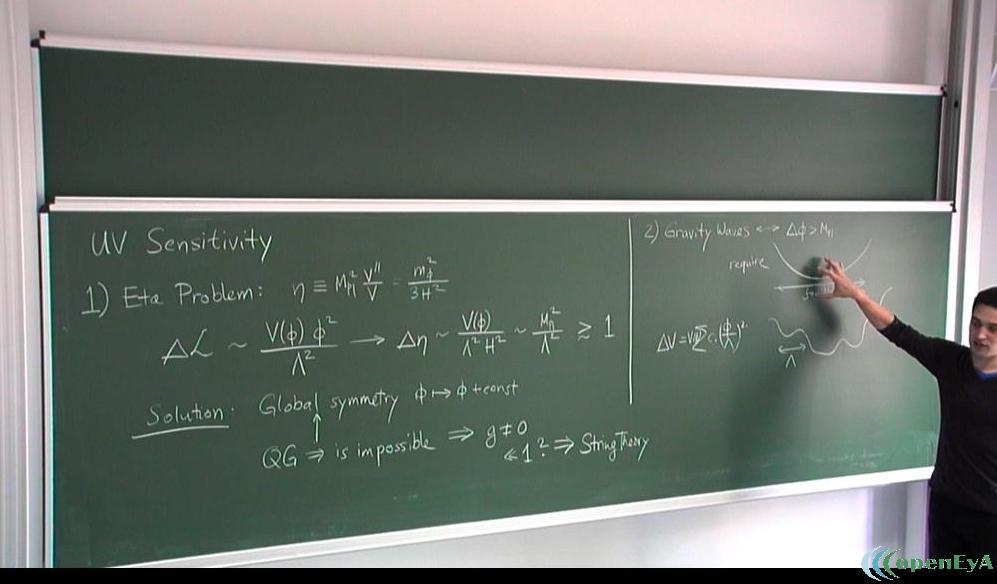 UV Sensitivity
1) Eta Problem: η ≡ M²Pl V''/V = m²ϕ/3H²
Δℒ ~ V(ϕ) ϕ²/Λ² → Δη ~ V(ϕ)/Λ²H² ~ M²Pl/Λ² ≳ 1
Solution: Global symmetry ϕ ↦ ϕ + const
↑
QG ⇒ is impossible ⇒ g ≠ 0
≪ 1 ? ⇒ String Theory
2) Gravity Waves ↔ Δϕ > MPl
require
ΔV = V(ϕ) Σ cᵢ (ϕ/Λ)
Λ
openEyA